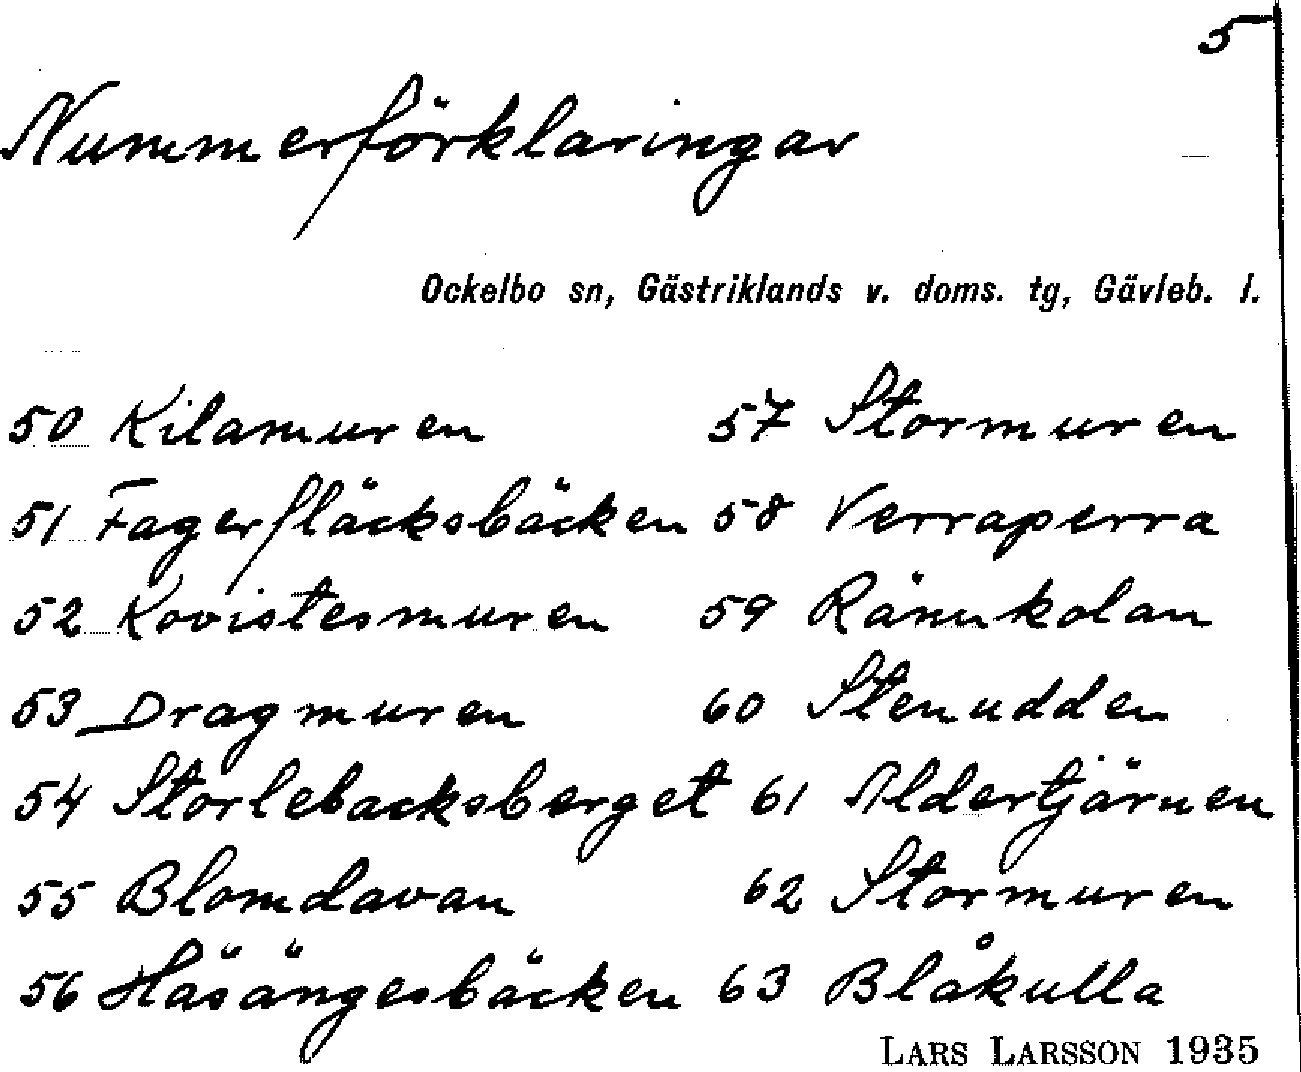 5
Nummerförklaringar
Ockelbo sn, Gästriklands v. doms. tg, Gävleb. l.
50 Kilamuren 57 Stormuren
51 Fagerfläcksbäcken 58 Verraperra
52 Kovistesmuren 59 Ränukolan
53 Dragmuren 60 Stenudden
54 Storlebacksberget 61 Aldertjärnen
55 Blomdavan 62 Stormuren
56 Häsängesbäcken 63 Blåkulla
LARS LARSSON 1935